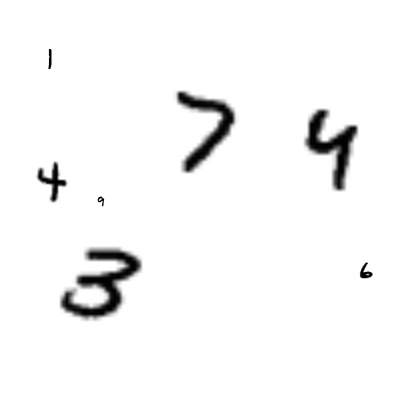 1
7 4
4 9
3 6